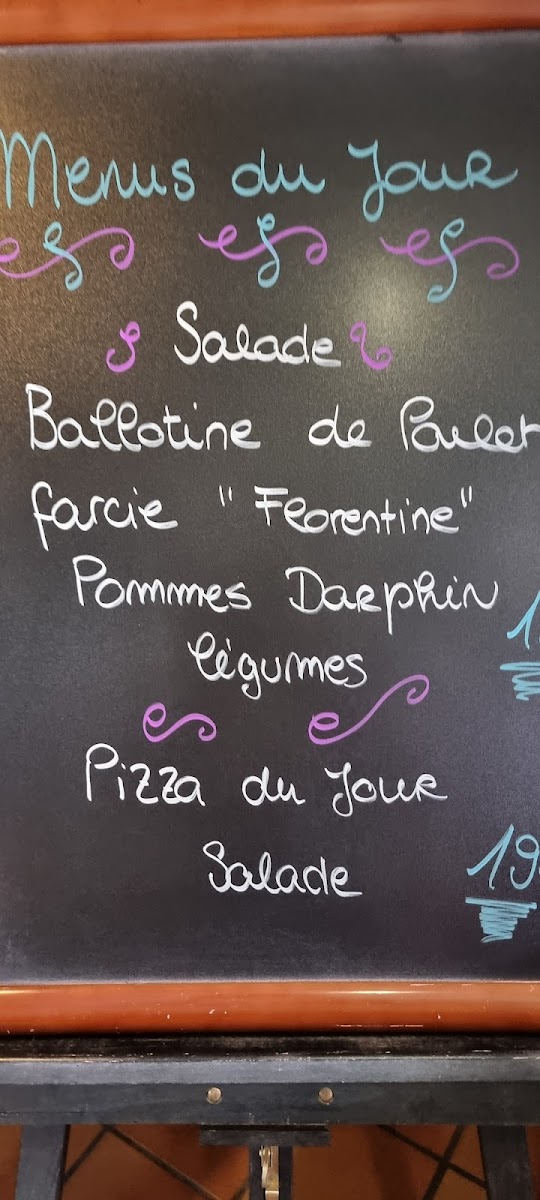 Menus du Jour
Salade
Ballotine de Poulet
farcie "Florentine"
Pommes Darphin
légumes
Pizza du Jour
Salade
19